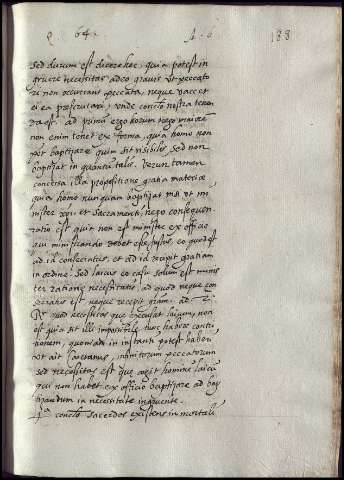 q. 64. A. 6 188
Sed durum est dicere hoc, quia potest in
gruere necessitas adeo gravis ut peccato
ri non occurrant peccata, neque vacet
ei ea
unde conclō nostra tenen
da est. ad primū ergo horum nego maiorē
non enim tenet ex forma, quia homo non
pōt baptizare quin sit risibilis, sed non
baptizat in quantū talis. Verum tamen
concessa illa propositione gratia materiae
quia homo nunquam baptizat nisi ut mi
nister xpi, et sacramenti, nego consequen
ratio est quia non est minister ex officio
qui ministrando debet esse iustus, eo quod est
ad id consecratus, et ad id recepit gratiam
in ordine. Sed laicus eo casu solum est minis
ter ratione necessitatis, ad quod neque con
secratus est neque recepit gram. ad 2
quod necessitas que excusat laicum, non
est quia sit illi impossibile tunc habere contri
tionem, quoniam in instanti potest haberi
ut ait Caietanus, infinitorum peccatorum
sed necessitas est que cogit hominē laicū
qui non habet ex officio baptizare ad bap
tizandum in necessitate ingruente.
conclō sacerdos existens in mortali